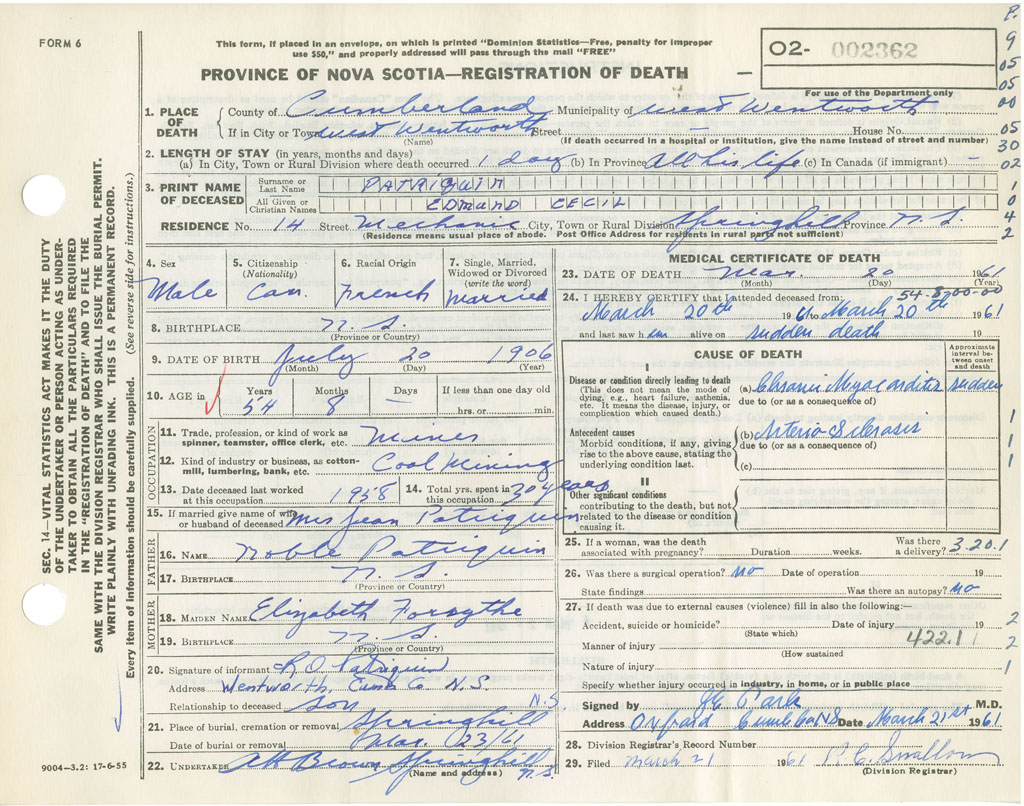 FORM 6
This form, if placed in an envelope, on which is printed "Dominion Statistics—Free, penalty for improper
use $50," and properly addressed will pass through the mail "FREE"
PROVINCE OF NOVA SCOTIA—REGISTRATION OF DEATH
02- 002362
For use of the Department only
P.
9
05
05
00
05
30
02
1
0
4
2
SEC. 14—VITAL STATISTICS ACT MAKES IT THE DUTY
OF THE UNDERTAKER OR PERSON ACTING AS UNDER-
TAKER TO OBTAIN ALL THE PARTICULARS REQUIRED
IN THE "REGISTRATION OF DEATH" AND TO FILE THE
SAME WITH THE DIVISION REGISTRAR WHO SHALL ISSUE THE BURIAL PERMIT.
WRITE PLAINLY WITH UNFADING INK. THIS IS A PERMANENT RECORD.
Every item of information should be carefully supplied. (See reverse side for instructions.)
1. PLACE OF DEATH
County of Cumberland Municipality of West Wentworth
If in City or Town West Wentworth Street — House No.
(Name) (If death occurred in a hospital or institution, give the name instead of street and number)
2. LENGTH OF STAY (in years, months and days)
(a) In City, Town or Rural Division where death occurred 1 day (b) In Province All his life (c) In Canada (if immigrant) —
3. PRINT NAME OF DECEASED
Surname or Last Name PATRIQUIN
All Given or Christian Names EDMUND CECIL
RESIDENCE No. 14 Street Mechanic City, Town or Rural Division Springhill Province N.S.
(Residence means usual place of abode. Post Office Address for residents in rural parts not sufficient)
4. Sex
Male
5. Citizenship (Nationality)
Can.
6. Racial Origin
French
7. Single, Married, Widowed or Divorced (write the word)
Married
8. BIRTHPLACE N.S.
(Province or Country)
9. DATE OF BIRTH July 20 1906
(Month) (Day) (Year)
10. AGE in
Years Months Days If less than one day old
54 8 — hrs. or min.
OCCUPATION
11. Trade, profession, or kind of work as spinner, teamster, office clerk, etc. Miner
12. Kind of industry or business, as cotton-mill, lumbering, bank, etc. Coal Mining
13. Date deceased last worked at this occupation 1958
14. Total yrs. spent in this occupation 30 years
15. If married give name of wife or husband of deceased Mrs Jean Patriquin
FATHER
16. NAME Noble Patriquin
17. BIRTHPLACE N.S.
(Province or Country)
MOTHER
18. MAIDEN NAME Elizabeth Forsythe
19. BIRTHPLACE N.S.
(Province or Country)
20. Signature of informant R.O. Patriquin
Address Wentworth, Cumb Co N.S.
Relationship to deceased Son
21. Place of burial, cremation or removal Springhill N.S
Date of burial or removal Mar. 23/61
22. UNDERTAKER AH Brown Springhill N.S.
(Name and address)
9004-3.2: 17-6-55
MEDICAL CERTIFICATE OF DEATH
23. DATE OF DEATH Mar. 20 1961
(Month) (Day) (Year)
54-8-00-00
24. I HEREBY CERTIFY that I attended deceased from:
March 20th 1961 to March 20th 1961
and last saw him alive on sudden death 19
CAUSE OF DEATH
Approximate interval between onset and death
I
Disease or condition directly leading to death
(This does not mean the mode of dying, e.g., heart failure, asthenia, etc. It means the disease, injury, or complication which caused death.)
(a) Chronic Myocarditis sudden
due to (or as a consequence of)
Antecedent causes
Morbid conditions, if any, giving rise to the above cause, stating the underlying condition last.
(b) Arterio Sclerosis
due to (or as a consequence of)
(c)
1
1
1
II
Other significant conditions
contributing to the death, but not related to the disease or condition causing it.
25. If a woman, was the death associated with pregnancy? Duration weeks. Was there a delivery?
3.20.1
26. Was there a surgical operation? no Date of operation 19
State findings Was there an autopsy? no
27. If death was due to external causes (violence) fill in also the following:—
Accident, suicide or homicide? Date of injury 19 2
(State which)
Manner of injury 422.1 2
(How sustained)
Nature of injury 1
Specify whether injury occurred in industry, in home, or in public place
Signed by Park M.D.
Address Oxford Cumb Co NS Date March 21st 1961
28. Division Registrar's Record Number
29. Filed March 21 1961 Swallow
(Division Registrar)